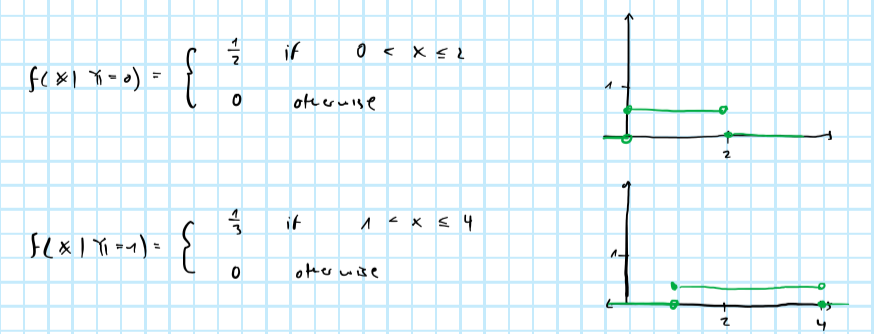 f(x | Yi = 0) = { 1/2 if 0 < x ≤ 2
0 otherwise
1
2
f(x | Yi = 1) = { 1/3 if 1 < x ≤ 4
0 otherwise
1
2 4